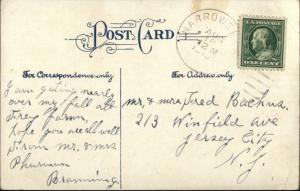 POST CARD
For Correspondence only
For Address only.
U.S. POSTAGE
ONE CENT
12 M
I am getting nearly
over my fall at
farm,
hope you are all well
from Mr. & Mrs
Mr. & Mrs. Fred Bachus.
213 Winfield ave
Jersey City
N.J.